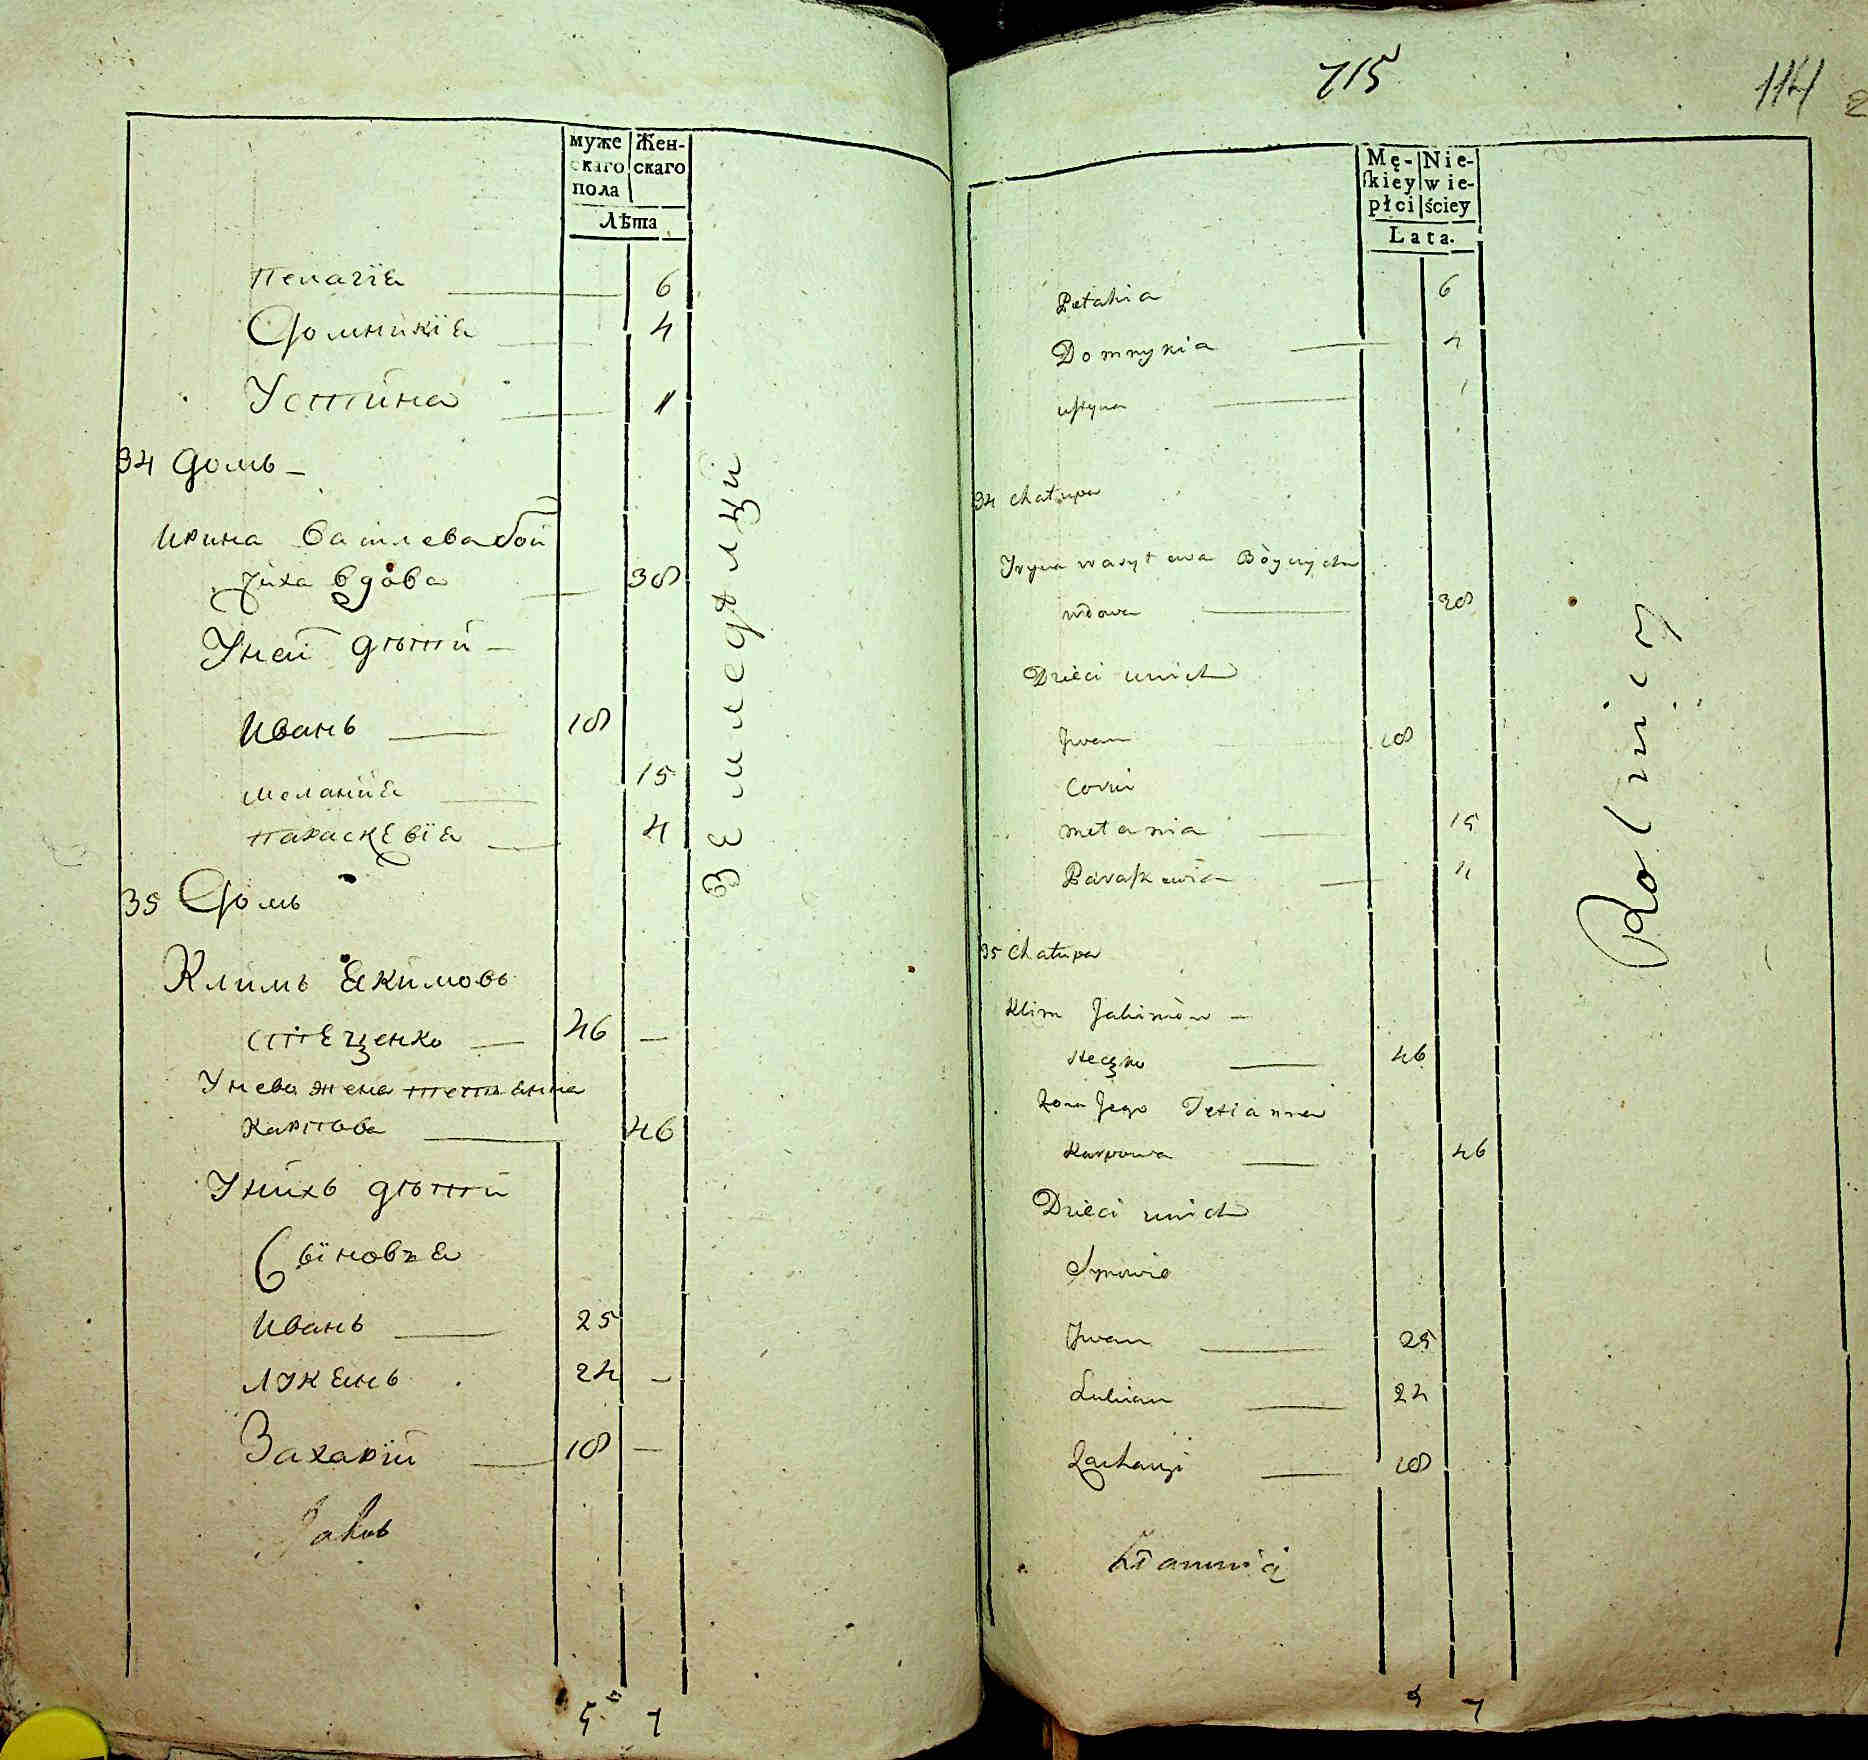 муже
скаго
пола
Жен-
скаго
Лѣта
Пелагїя 6
Домникїя 4
Устина 1
34 Домъ
Ирина Василева бой
чиха вдова 38
Уней дѣти
Иванъ 18
Мелания 15
Параскевїя 4
35 Домъ
Климъ Якимовъ
Стеценко 46 —
Унево жена Тетянна
Карпова 46
Унихъ дѣти
Сыновья
Иванъ 25
Лукянъ 24 —
Захарїй 18 —
Jakub
5 7
Земледѣлци
715
114
Mę-
skiey
płci
Nie-
wie-
ściey
Lata.
Pełahia 6
Domnykia 4
ustyna 1
34 Chałupa
Iryna wasyłewa Bòyczycha
wdowa 38
Dzieci unich
Jwan 18
Corki
Mełania 15
Paraskewia 4
35 Chałupa
Klim Jakimòw —
Steczko 46
Żona Jego Tetianna
Karpowa 46
Dzieci unich
Synowie
Jwan 25
Lukian 24
Zacharyi 18
5 7
Rolnicy